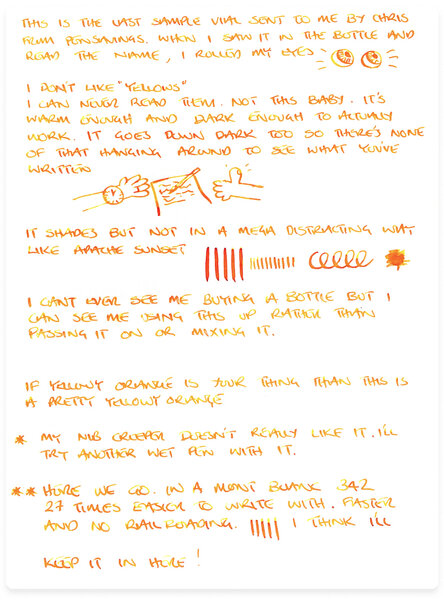 THIS IS THE LAST SAMPLE VIAL SENT TO ME BY CHRIS
FROM PENSAVINGS. WHEN I SAW IT IN THE BOTTLE AND
READ THE NAME, I ROLLED MY EYES
I DON'T LIKE "YELLOWS"
I CAN NEVER READ THEM. NOT THIS BABY. IT'S
WARM ENOUGH AND DARK ENOUGH TO ACTUALLY
WORK. IT GOES DOWN DARK TOO SO THERE'S NONE
OF THAT HANGING AROUND TO SEE WHAT YOU'VE
WRITTEN
IT SHADES BUT NOT IN A MEGA DISTRACTING WAY
LIKE APACHE SUNSET
I CANT EVER SEE ME BUYING A BOTTLE BUT I
CAN SEE ME USING THIS UP RATHER THAN
PASSING IT ON OR MIXING IT.
IF YELLOWY ORANGE IS YOUR THING THAN THIS IS
A PRETTY YELLOWY ORANGE
* MY NIB CREEPER DOESN'T REALLY LIKE IT. I'LL
TRY ANOTHER WET PEN WITH IT.
** HERE WE GO. IN A MONT BLANK 342
27 TIMES EASIER TO WRITE WITH. FASTER
AND NO RAILROADING. I THINK I'LL
KEEP IT IN HERE!